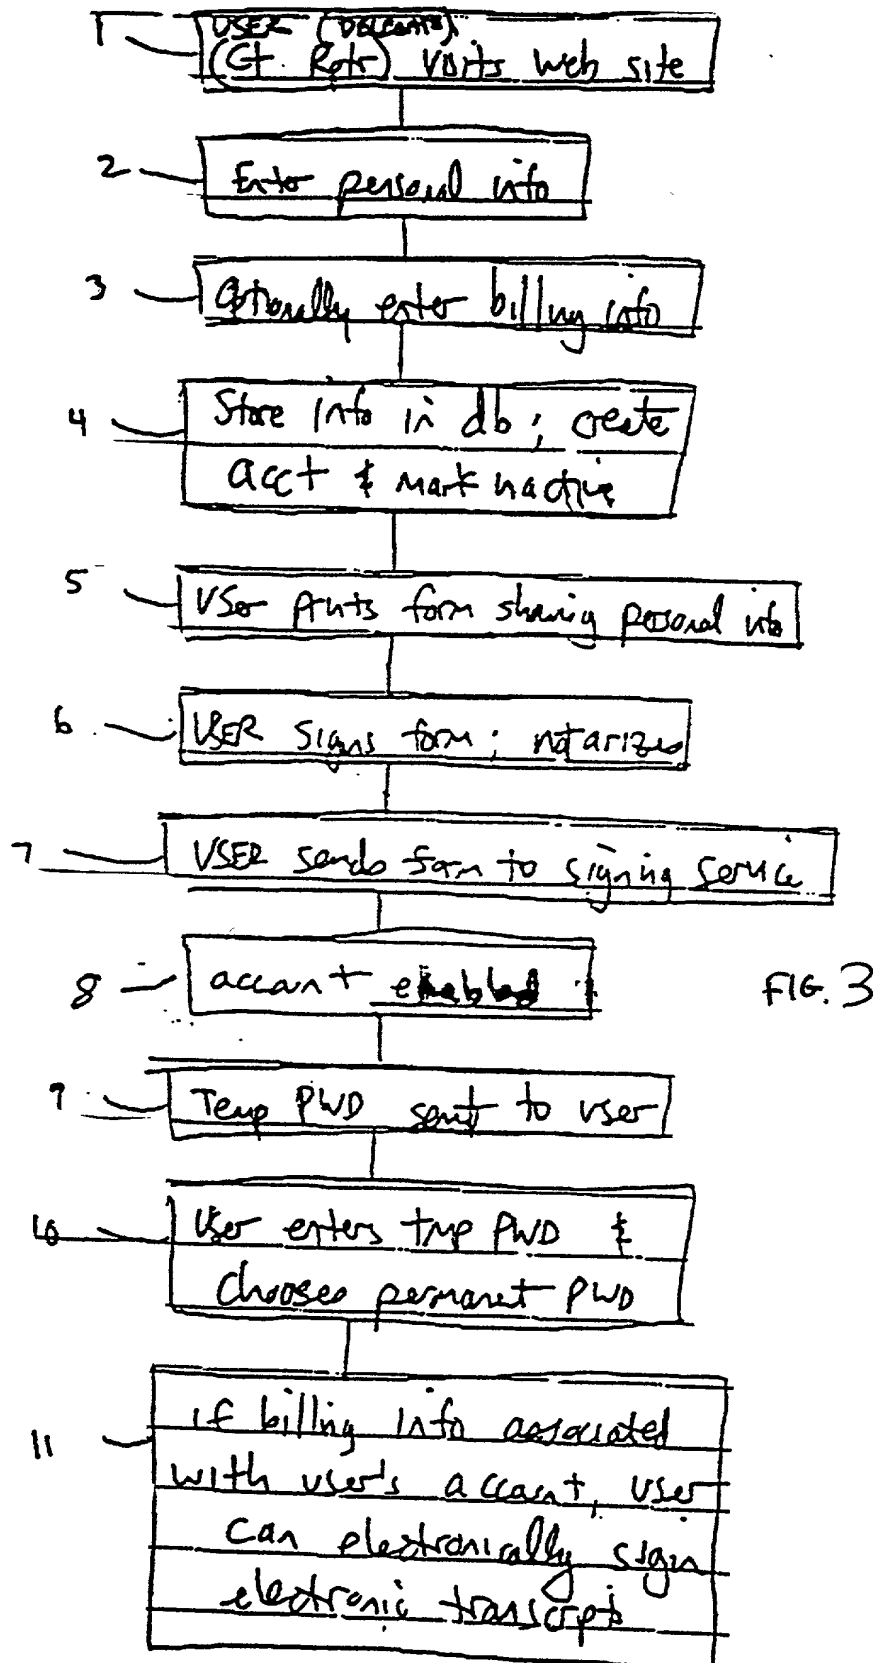 1
USER
(Ct. Rptr) visits web site
2
Enter personal info
3
Optionally enter billing info
4
Store info in db; create
acct & mark inactive
5
User prints form showing personal info
6
USER signs form; notarizes
7
USER sends form to signing service
8
account enabled
FIG. 3
9
Temp PWD sent to user
10
User enters tmp PWD &
chooses permanent PWD
11
if billing info associated
with user's account, user
can electronically sign
electronic transcripts